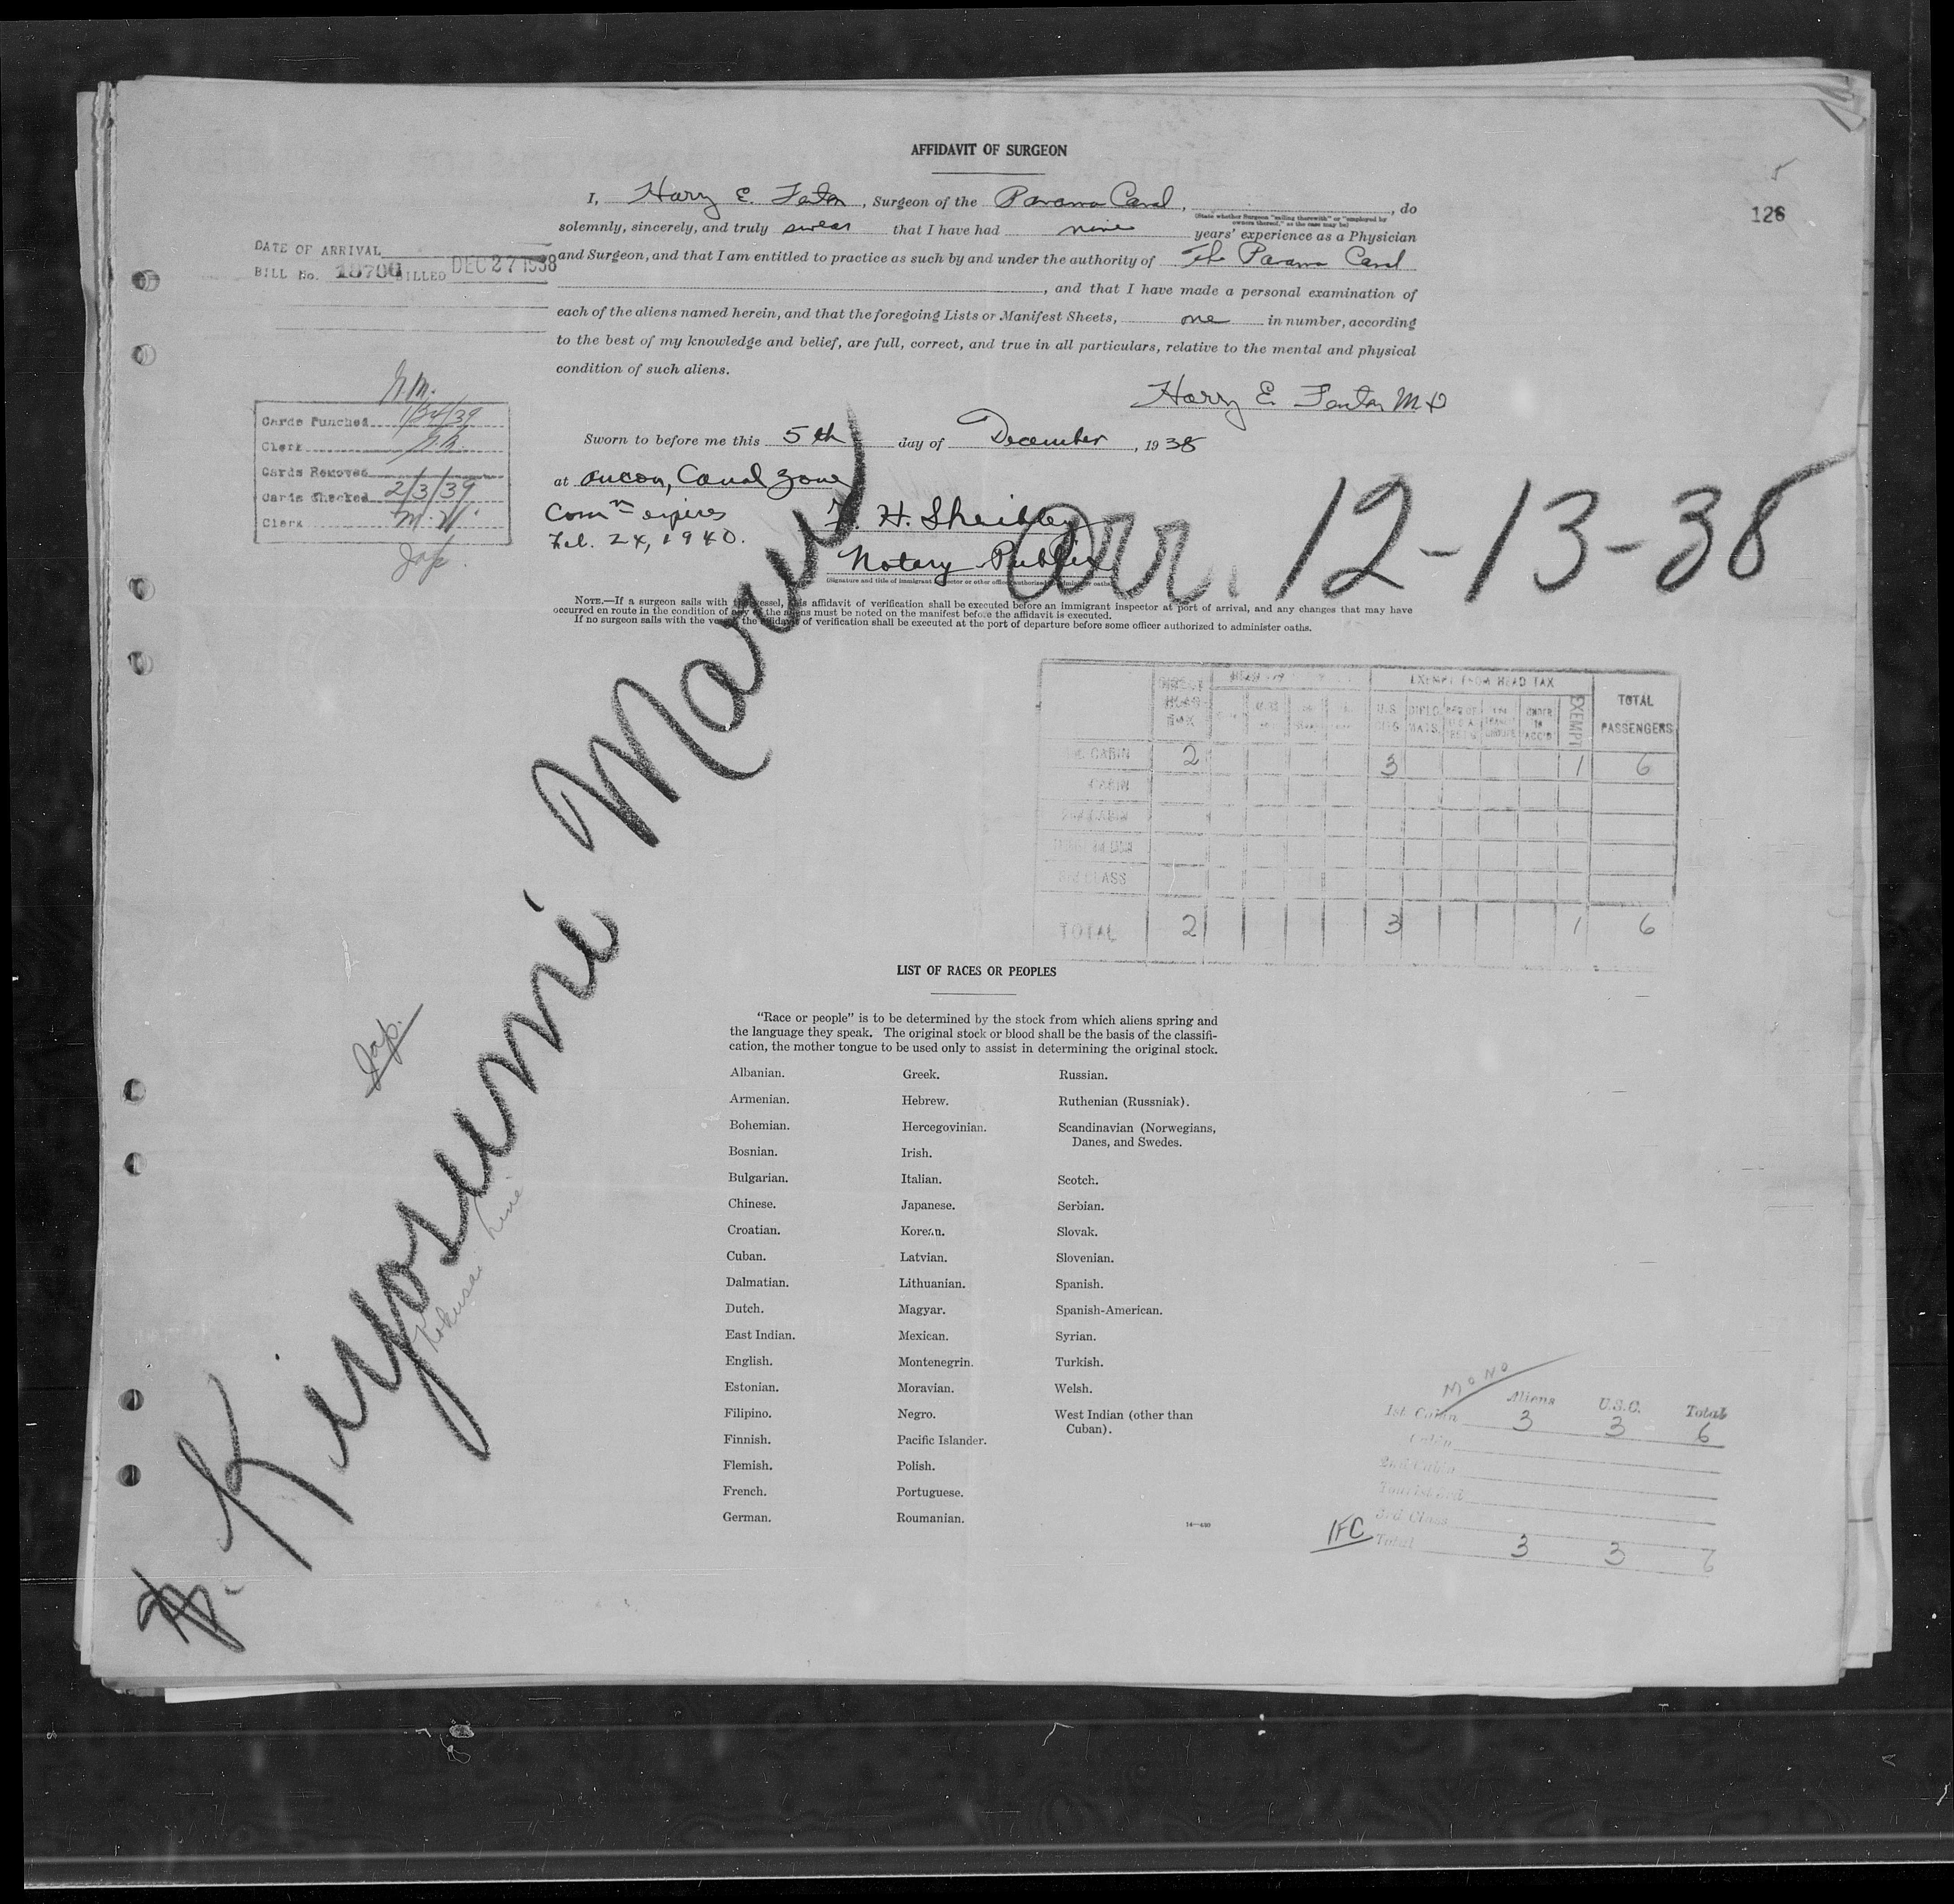 AFFIDAVIT OF SURGEON
5
126
I, Harry E. Fenton, Surgeon of the Panama Canal, , do
(State whether Surgeon "sailing therewith" or "employed by owners thereof," as the case may be)
solemnly, sincerely, and truly swear that I have had nine years' experience as a Physician
and Surgeon, and that I am entitled to practice as such by and under the authority of The Panama Canal
, and that I have made a personal examination of
each of the aliens named herein, and that the foregoing Lists or Manifest Sheets, one in number, according
to the best of my knowledge and belief, are full, correct, and true in all particulars, relative to the mental and physical
condition of such aliens.
Harry E. Fenton M D
Sworn to before me this 5th day of December, 1938
at Ancon, Canal Zone
Comn expires
Feb. 24, 1940.
H. Sheibley
Notary Public
(Signature and title of immigrant inspector or other officer authorized to administer oaths)
NOTE.—If a surgeon sails with the vessel, this affidavit of verification shall be executed before an immigrant inspector at port of arrival, and any changes that may have
occurred en route in the condition of any of the aliens must be noted on the manifest before the affidavit is executed.
If no surgeon sails with the vessel, the affidavit of verification shall be executed at the port of departure before some officer authorized to administer oaths.
DATE OF ARRIVAL
BILL No. BILLED DEC 27 1938
Cards Punched
Clerk
Cards Removed
Cards Checked 2/3/39
Clerk
Jap.
Arr. 12-13-38
Kiyosumi Maru
Jap.
Kokusai Line
DIRECT HEAD TAX
EXEMPT FROM HEAD TAX
U.S. CITS.
DIPLO MATS.
UNDER 16 ACC'D
EXEMPT
TOTAL PASSENGERS
CABIN 2 3 1 6
CABIN
CLASS
TOTAL 2 3 1 6
LIST OF RACES OR PEOPLES
"Race or people" is to be determined by the stock from which aliens spring and
the language they speak. The original stock or blood shall be the basis of the classifi-
cation, the mother tongue to be used only to assist in determining the original stock.
Albanian.
Armenian.
Bohemian.
Bosnian.
Bulgarian.
Chinese.
Croatian.
Cuban.
Dalmatian.
Dutch.
East Indian.
English.
Estonian.
Filipino.
Finnish.
Flemish.
French.
German.
Greek.
Hebrew.
Hercegovinian.
Irish.
Italian.
Japanese.
Korean.
Latvian.
Lithuanian.
Magyar.
Mexican.
Montenegrin.
Moravian.
Negro.
Pacific Islander.
Polish.
Portuguese.
Roumanian.
Russian.
Ruthenian (Russniak).
Scandinavian (Norwegians,
Danes, and Swedes.
Scotch.
Serbian.
Slovak.
Slovenian.
Spanish.
Spanish-American.
Syrian.
Turkish.
Welsh.
West Indian (other than
Cuban).
MONO
Aliens U.S.C. Total
1st Cabin 3 3 6
Cabin
2nd Cabin
Tourist 3rd
3rd Class
IFC
Total 3 3 6